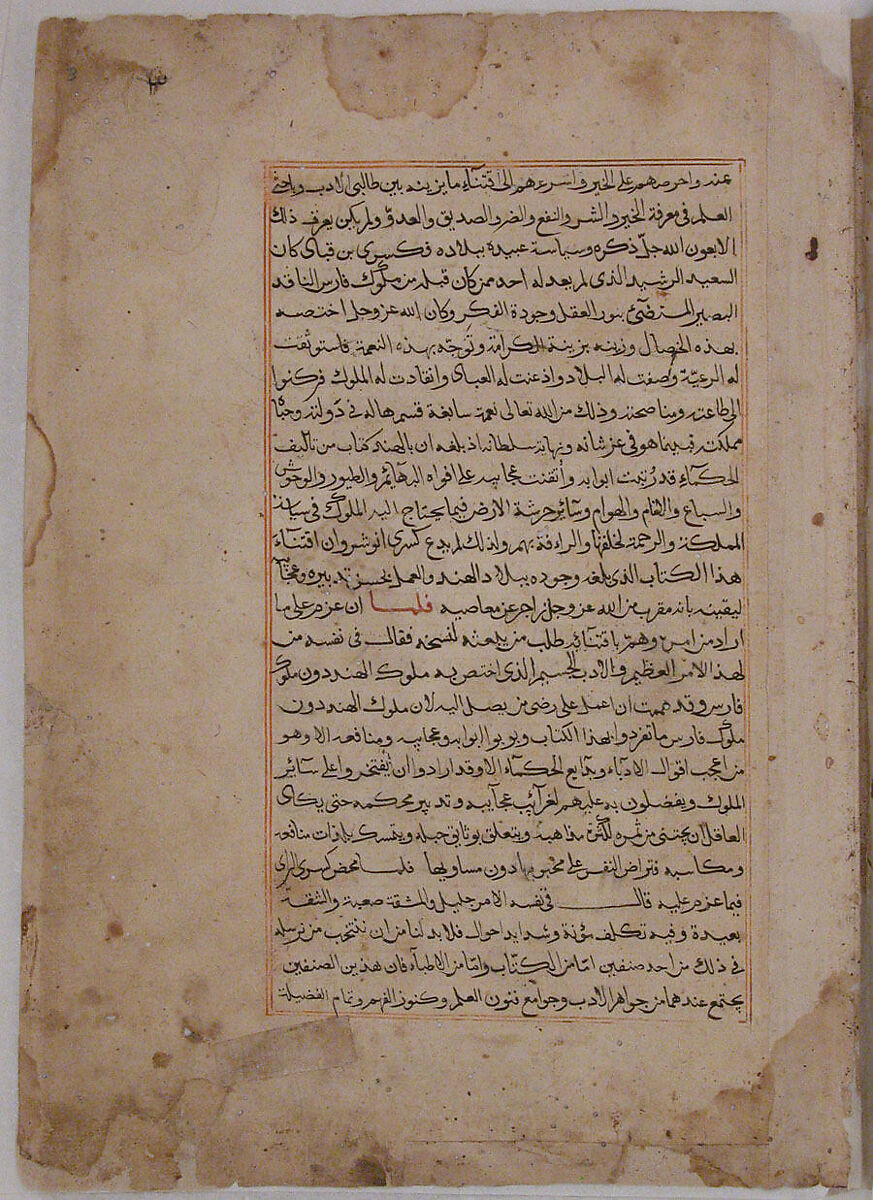 ٣
عنده واحرصهم على الخير واسرعهم الى اقتنآء ما يزينه بين طالبى الادب وباحثى
العلم فى معرفة الخير والشر والنفع والضر والصديق والعدوّ ولم يكن يعرف ذلك
الا بعون الله جلّ ذكره وسياسة عبيده ببلاده فكسرى بن قباد كان
السعيد الرشيد الذى لم يعدله احد ممن كان قبله من ملوك فارس الناقد
البصير المستضئ بنور العقل وجودة الفكر وكان الله عز وجل اختصه
بهذه الخصال وزينه بزينة الكرامة وتوّجه بهذه النعمة فاستوثقت
له الرعيّة وصفت له البلاد واذعنت له العباد وانقادت له الملوك فركنوا
الى طاعته ومناصحته وذلك من الله تعالى نعمة سابغة قسمها له فى دولته وحباه
مملكته فبينما هو فى عز شانه ونهاية سلطانه اذ بلغه ان بالهند كتاب من تاليف
الحكمآء قد رُتبت ابوابه وأتقنت عجايبه على افواه البهآئم والطيور والوحوش
والسباع والهوام وسآئر حرشة الارض فيما يحتاج اليه الملوك فى سياسة
المملكة والرحمة لخلقها والرافة بهم ولذلك لم يدع كسرى انوشروان اقتنآء
هذا الكتاب الذى بلغه وجوده ببلاد الهند والعمل بحسن تدبيره وعجآيبه
ليقينه بانه مقرب من الله عز وجل زاجر عن معاصيه فلما ان عزم على ما
اراد من امره وهمّ باقتنآئه طلب من يبعثه لنسخه فقال فى نفسه من
لهذا الامر العظيم والادب الجسيم الذى اختص به ملوك الهند دون ملوك
فارس وقد هممت ان اعمل على رضى من يصل اليه لان ملوك الهند دون
ملوك فارس ما تفردوا بهذا الكتاب وبوبوا ابوابه وعجايبه ومنافعه الا وهو
من اعجب اقوال الادبآء وبدايع الحكمآء الا وقد ارادوا ان يفتخروا على سآئر
الملوك ويفضلون به عليهم لغرآئب عجآيبه وتدبير محكمه حتى يكاد
العاقل ان يجتنى من ثمره لكثرة مذاهبه ويتعلق بوثايق حبله ويتمسك منافعه
ومكاسبه فتراض النفس على محبوبها دون مساويها فلما محض كسرى الراى
فيما عزم عليه قال فى نفسه الامر جليل والمشقة صعبة والشقة
بعيدة وفيه تكلف مئونة وشدايد احوال فلا بد لنا من ان ننتخب من نرسله
فى ذلك من احد صنفين امّا من الكتّاب وامّا من الاطبآء فان هذين الصنفين
يجتمع عندهما من جواهر الادب وجوامع فنون العلم وكنوز الفهم وتمام الفضيلة